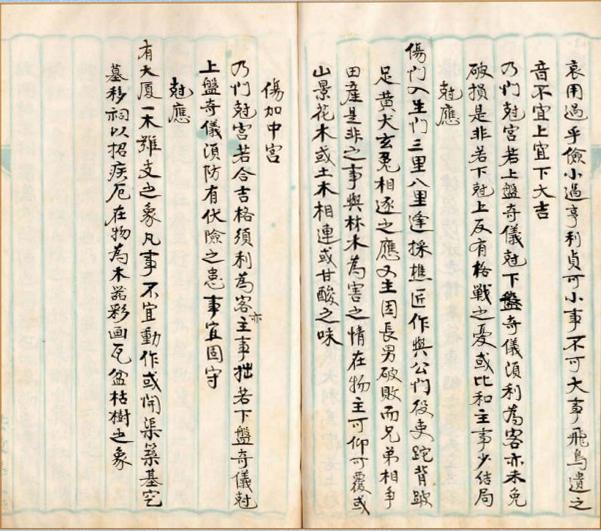 哀用過乎儉小過亨利貞可小事不可大事飛鳥遺之
音不宜上宜下大吉
乃門尅宮若上盤奇儀尅下盤奇儀須利為客亦未免
破損是非若下尅上反有格戰之憂或比和主事少結局
尅應
傷門入生門三里八里逢採樵匠作與公門役吏跎背跛
足黃犬玄兔相逐之應又主因長男破敗而兄弟相爭
田產是非之事與林木為害之情在物主可仰可覆或
山景花木或土木相連或甘酸之味
傷加中宮
乃門尅宮若合吉格須利為客主事亦拙若下盤奇儀尅
上盤奇儀須防有伏險之患事宜固守
尅應
有大厦一木難支之象凡事不宜動作或開渠築基穵
墓移祠以招疾厄在物為木器彩画瓦盆枯樹之象